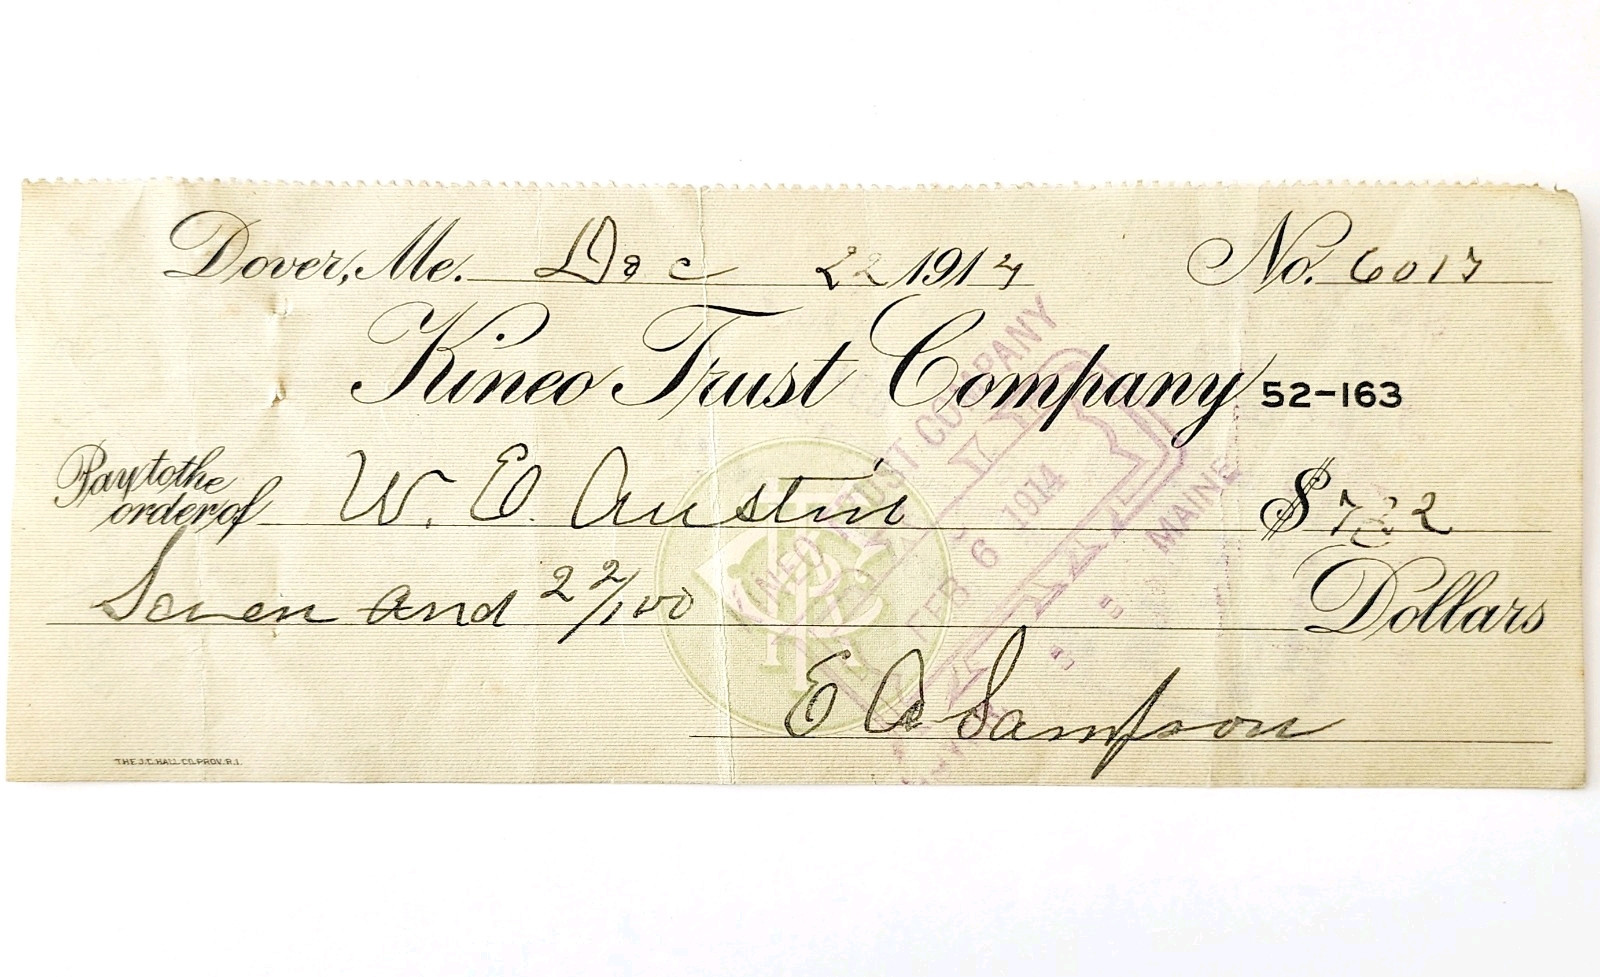 Dover, Me. Dec 22 1914 No. 6017
Kineo Trust Company 52-163
Pay to the order of W. E. Austin $7.22
Seven and 22/100 Dollars
E A Sampson
THE J.C. HALL CO. PROV. R.I.
KINEO TRUST COMPANY
PAID
FEB 6 1914
MAINE